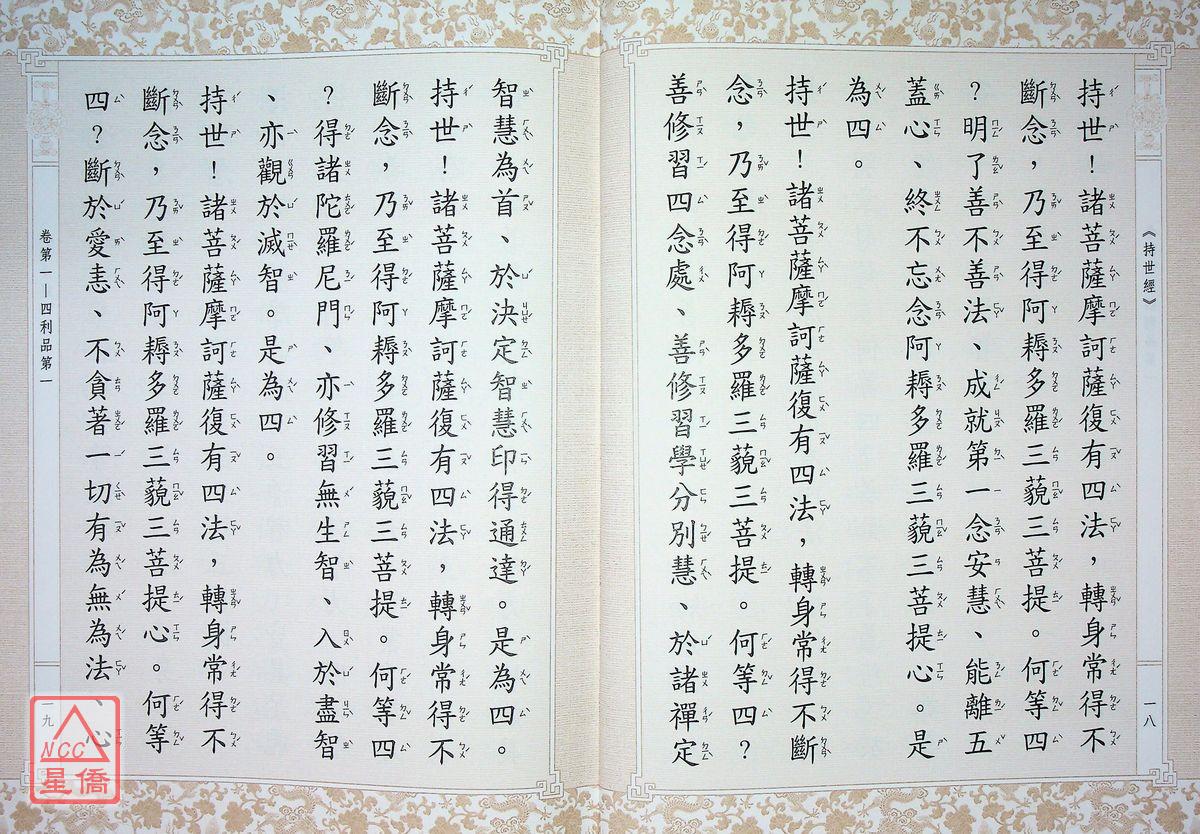 《持世經》
一八
持世！諸菩薩摩訶薩復有四法，轉身常得不
斷念，乃至得阿耨多羅三藐三菩提。何等四
？明了善不善法、成就第一念安慧、能離五
蓋心、終不忘念阿耨多羅三藐三菩提心。是
為四。
持世！諸菩薩摩訶薩復有四法，轉身常得不斷
念，乃至得阿耨多羅三藐三菩提。何等四？
善修習四念處、善修習學分別慧、於諸禪定
智慧為首、於決定智慧印得通達。是為四。
持世！諸菩薩摩訶薩復有四法，轉身常得不
斷念，乃至得阿耨多羅三藐三菩提。何等四
？得諸陀羅尼門、亦修習無生智、入於盡智
、亦觀於滅智。是為四。
持世！諸菩薩摩訶薩復有四法，轉身常得不
斷念，乃至得阿耨多羅三藐三菩提心。何等
四？斷於愛恚、不貪著一切有為無為法、心
卷第一—四利品第一
一九
NCC
星僑